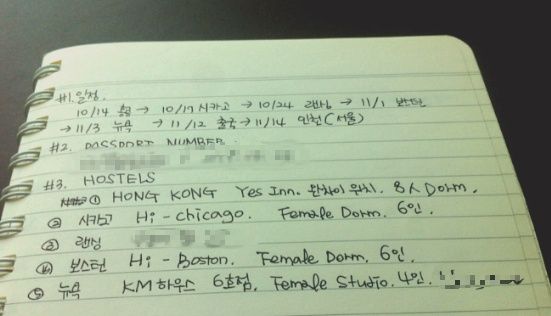 #1. 일정.
10/14 홍콩 → 10/17 시카고 → 10/24 랜싱 → 11/1 보스턴
→ 11/3 뉴욕 → 11/12 출국 → 11/14 인천(서울)
#2. PASSPORT NUMBER.
#3. HOSTELS
① HONG KONG Yes Inn. 완차이 위치. 8人 Dorm.
② 시카고 Hi-chicago. Female Dorm. 6인.
③ 랜싱
④ 보스턴 Hi-Boston. Female Dorm. 6인.
⑤ 뉴욕 KM하우스 6호점. Female Studio. 4인.